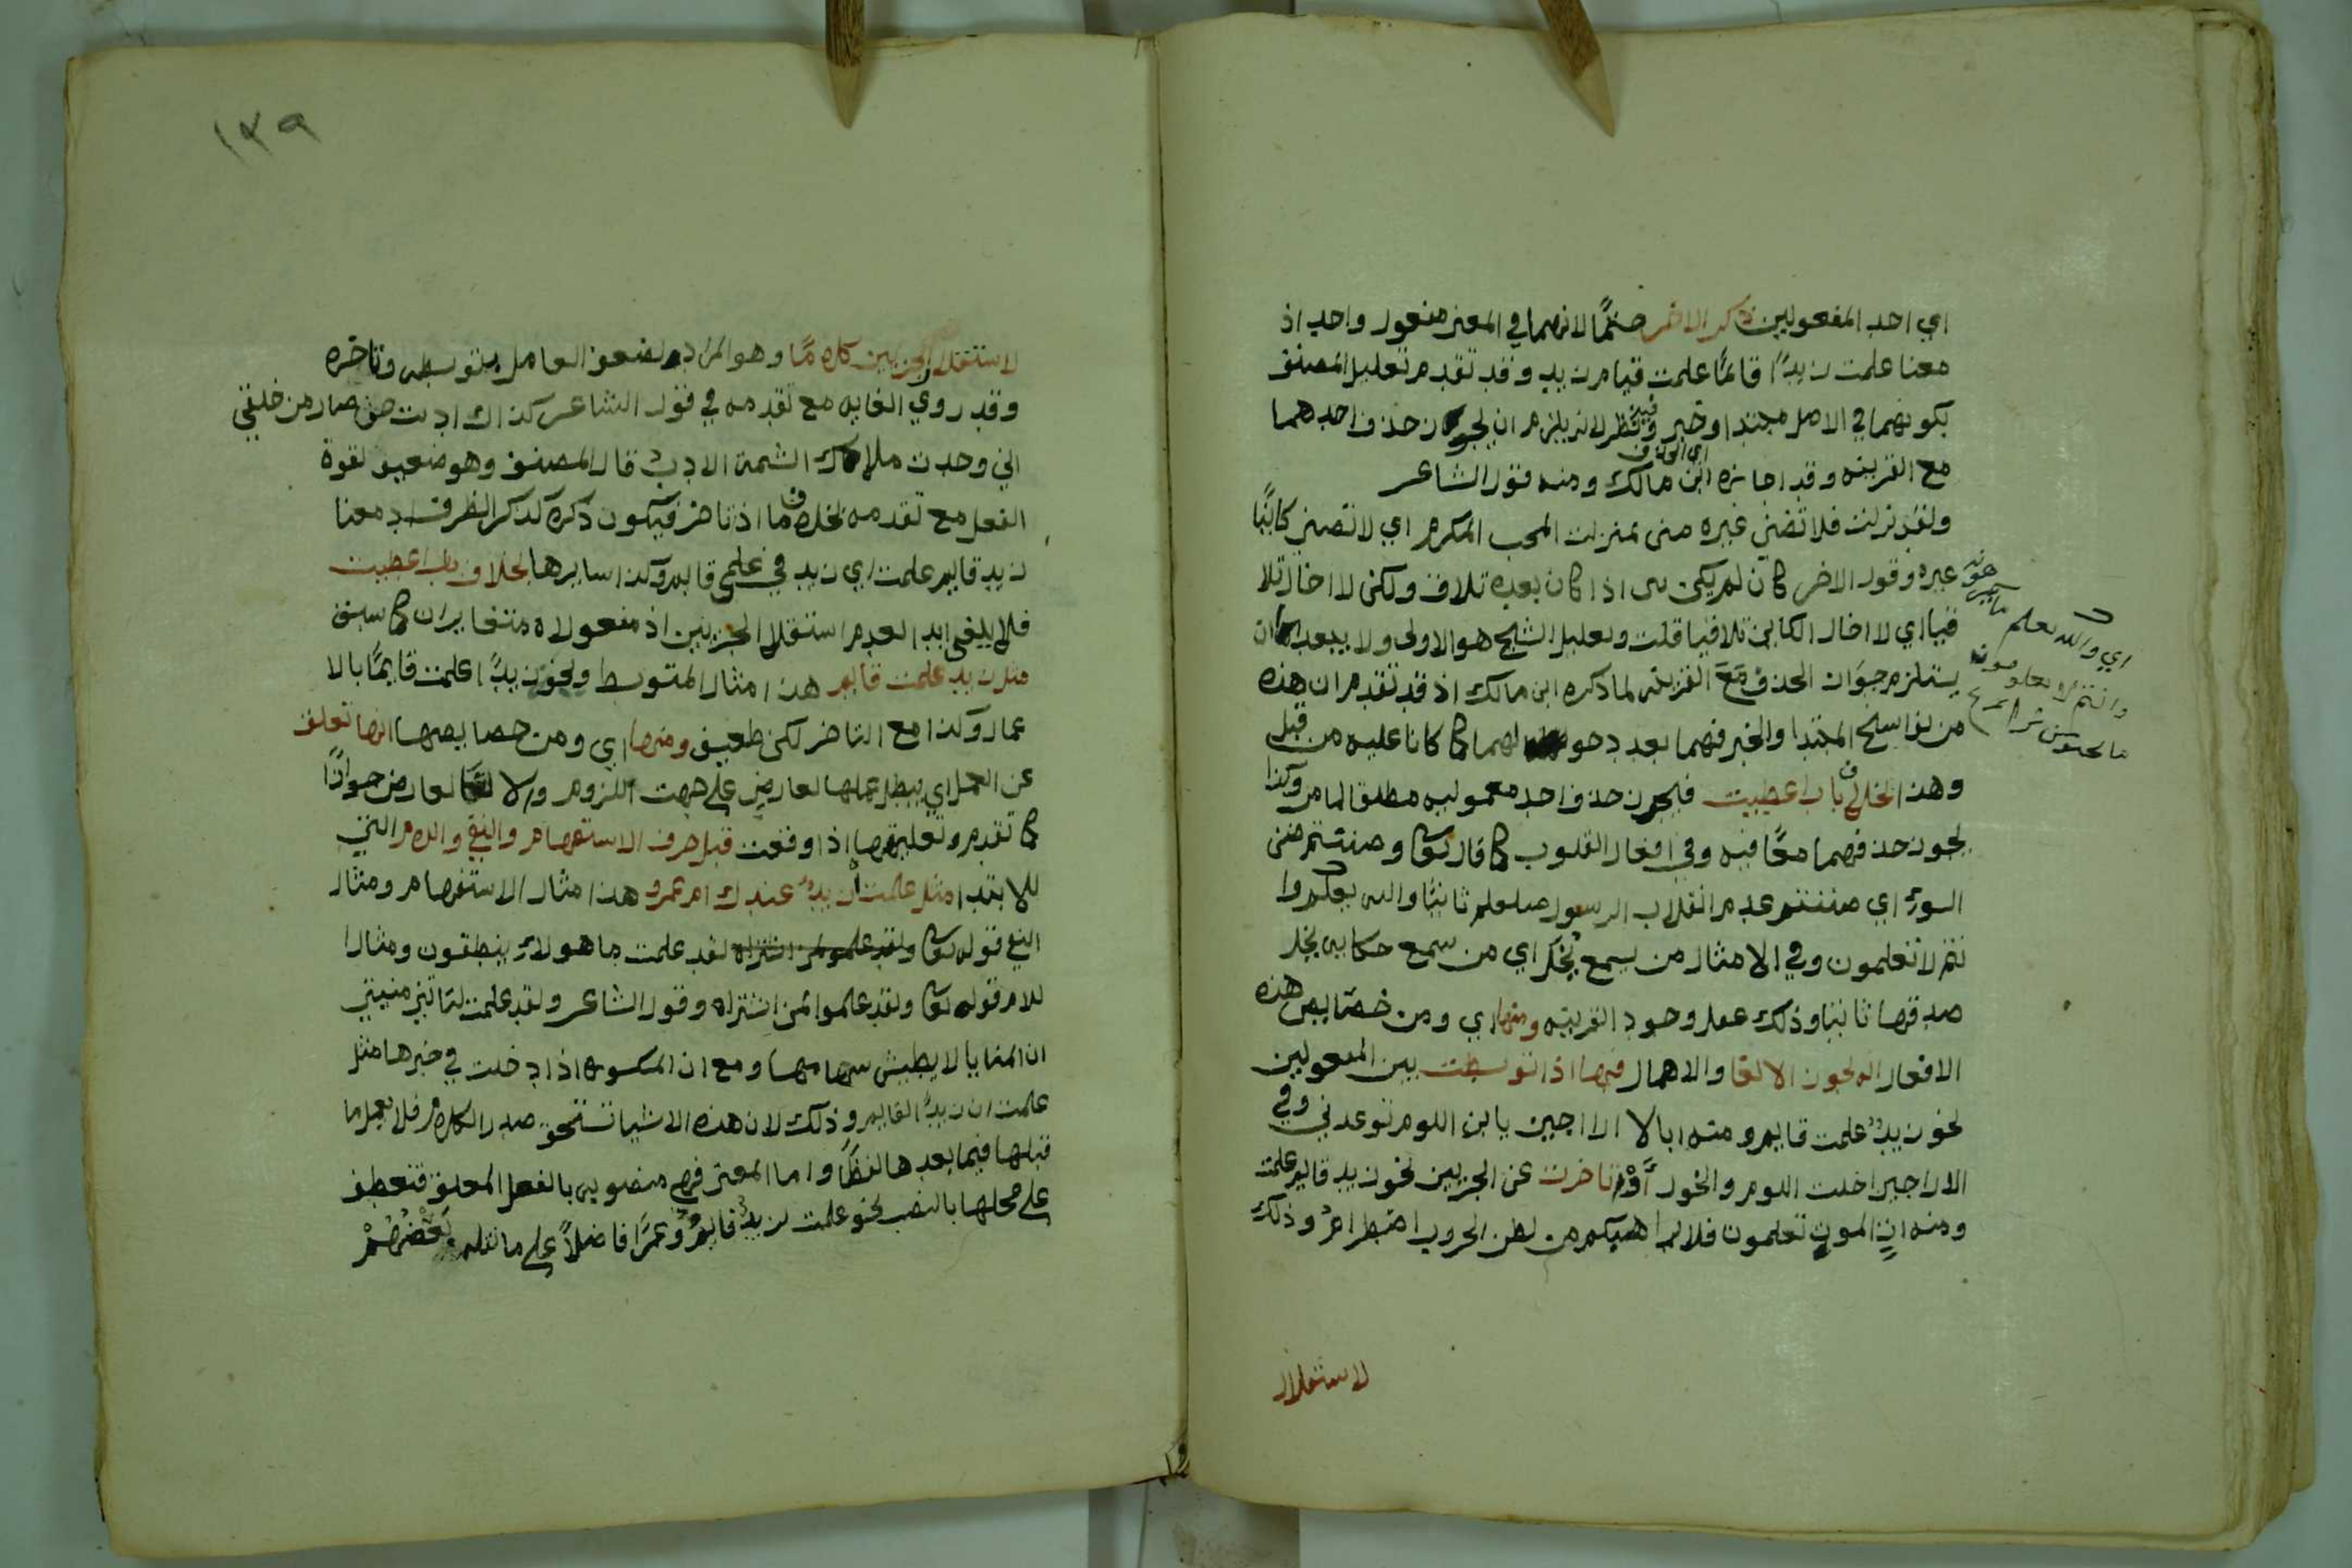 اي احد المفعولين ذكر الاخر حتمًا لانهما في المعنى مفعول واحد اذ
معنا علمت زيدًا قائمًا علمت قيام زيد وقد تقدم تعليل المصنف
بكونهما في الاصل مبتدا وخبر وفيه نظر لانه يلزم ان يجوز حذف احدهما
مع القرينه وقد اجازه ابن مالك ومنه قول الشاعر
ولقد نزلت فلا تضني غيره مني بمنزلت المحب المكرم اي لا تضني كائنًا
غيره وقول الاخر كان لم يكن بين اذا كان بعده تلاق ولكن لا اخال تلا
قيا اي لا اخال الكائن تلاقيا قلت وتعليل الشيخ هو الاولى ولا يبعد ان
يستلزم جواز الحذف مع القرينه لما ذكره ابن مالك اذ قد تقدم ان هذه
من نواسخ المبتدا والخبر فهما بعد دخولها لهما كما كانا عليه من قبل
وهذا بخلاف باب اعطيت فيجوز حذف احد معموليه مطلقا لما مر وكذا
يجوز حذفهما معًا فيه وفي افعال القلوب كما قال تعالى وضننتم ضن
السوء اي ضننتم عدم انقلاب الرسول صلعلم ثابتًا والله يعلم وا
نتم لا تعلمون وفي الامثال من يسمع يخل اي من سمع حكايه يخل
صدقها ثابتا وذلك عند وجود القرينه ومنها اي ومن خصايص هذه
الافعال انه يجوز الالغا والاهمال فيها اذا توسطت بين المفعولين
نحو زيدٌ علمت قايم ومنه ابالاراجيز يابن اللوم توعدني وفي
الاراجيز اخلت اللوم والخور أوْ تاخرت عن الجزيين نحو زيد قايم علمت
ومنه اتٍ الموت تعلمون فلا يرهبكم من لظى الحروب اضطرامُ وذلك
لاستقلال
اي والله يعلم
وانتم لا تعلمون
١٣٩
لاستقلال الجزيين كلامًا وهو المراد لضعف العامل بتوسطه وتاخره
وقد روي الغايه مع تقدمه في قول الشاعر كذاك ادبت حتى صار من خلقي
اني وجدت ملاك الشيمة الادبُ قال المصنف وهو ضعيف لقوة
الفعل مع تقدمه بخلاف ما اذا تاخر فيكون ذكره كذكر الظرف اذ معنا
زيد قايم علمت اي زيد في علمي قايم وكذا سايرها بخلاف باب اعطيت
فلا يلغى ابدا لعدم استقلال الجزيين اذ مفعولاه متغايران كما سبق
مثل زيد علمت قايم هذا مثال المتوسط ونحو زيدًا علمت قايمًا بالا
عمال وكذا مع التاخر لكن ضعيف ومنها اي ومن خصايصها انها تعلق
عن العمل اي يبطل عملها لعارض على جهت اللزوم والالغا لعارض جوازًا
كما تقدم وتعليقها اذا وقعت قبل حرف الاستفهام والنفي واللام التي
للابتدا مثل علمت أزيدٌ عندك ام عمرو هذا مثال الاستفهام ومثال
النفي قوله تعالى ولقد علموا لمن اشتراه لقد علمت ما هولاء ينطقون ومثال ا
للام قوله تعالى ولقد علموا لمن اشتراه وقول الشاعر ولقد علمت لتاتين منيتي
ان المنايا لا يطيش سهامها ومع ان المكسوره اذا دخلت في خبرها مثل
علمت ان زيدًا لقايم وذلك لان هذه الاشيا تستحق صدر الكلام فلا يعمل ما
قبلها فيما بعدها لفظًا واما المعنى فهي منصوبه بالفعل المعلق فتعطف
على محلها بالنصب نحو علمت لزيدٌ قايمٌ وعمرًا فاضلاً على ما نقله بَعْضُهُمْ